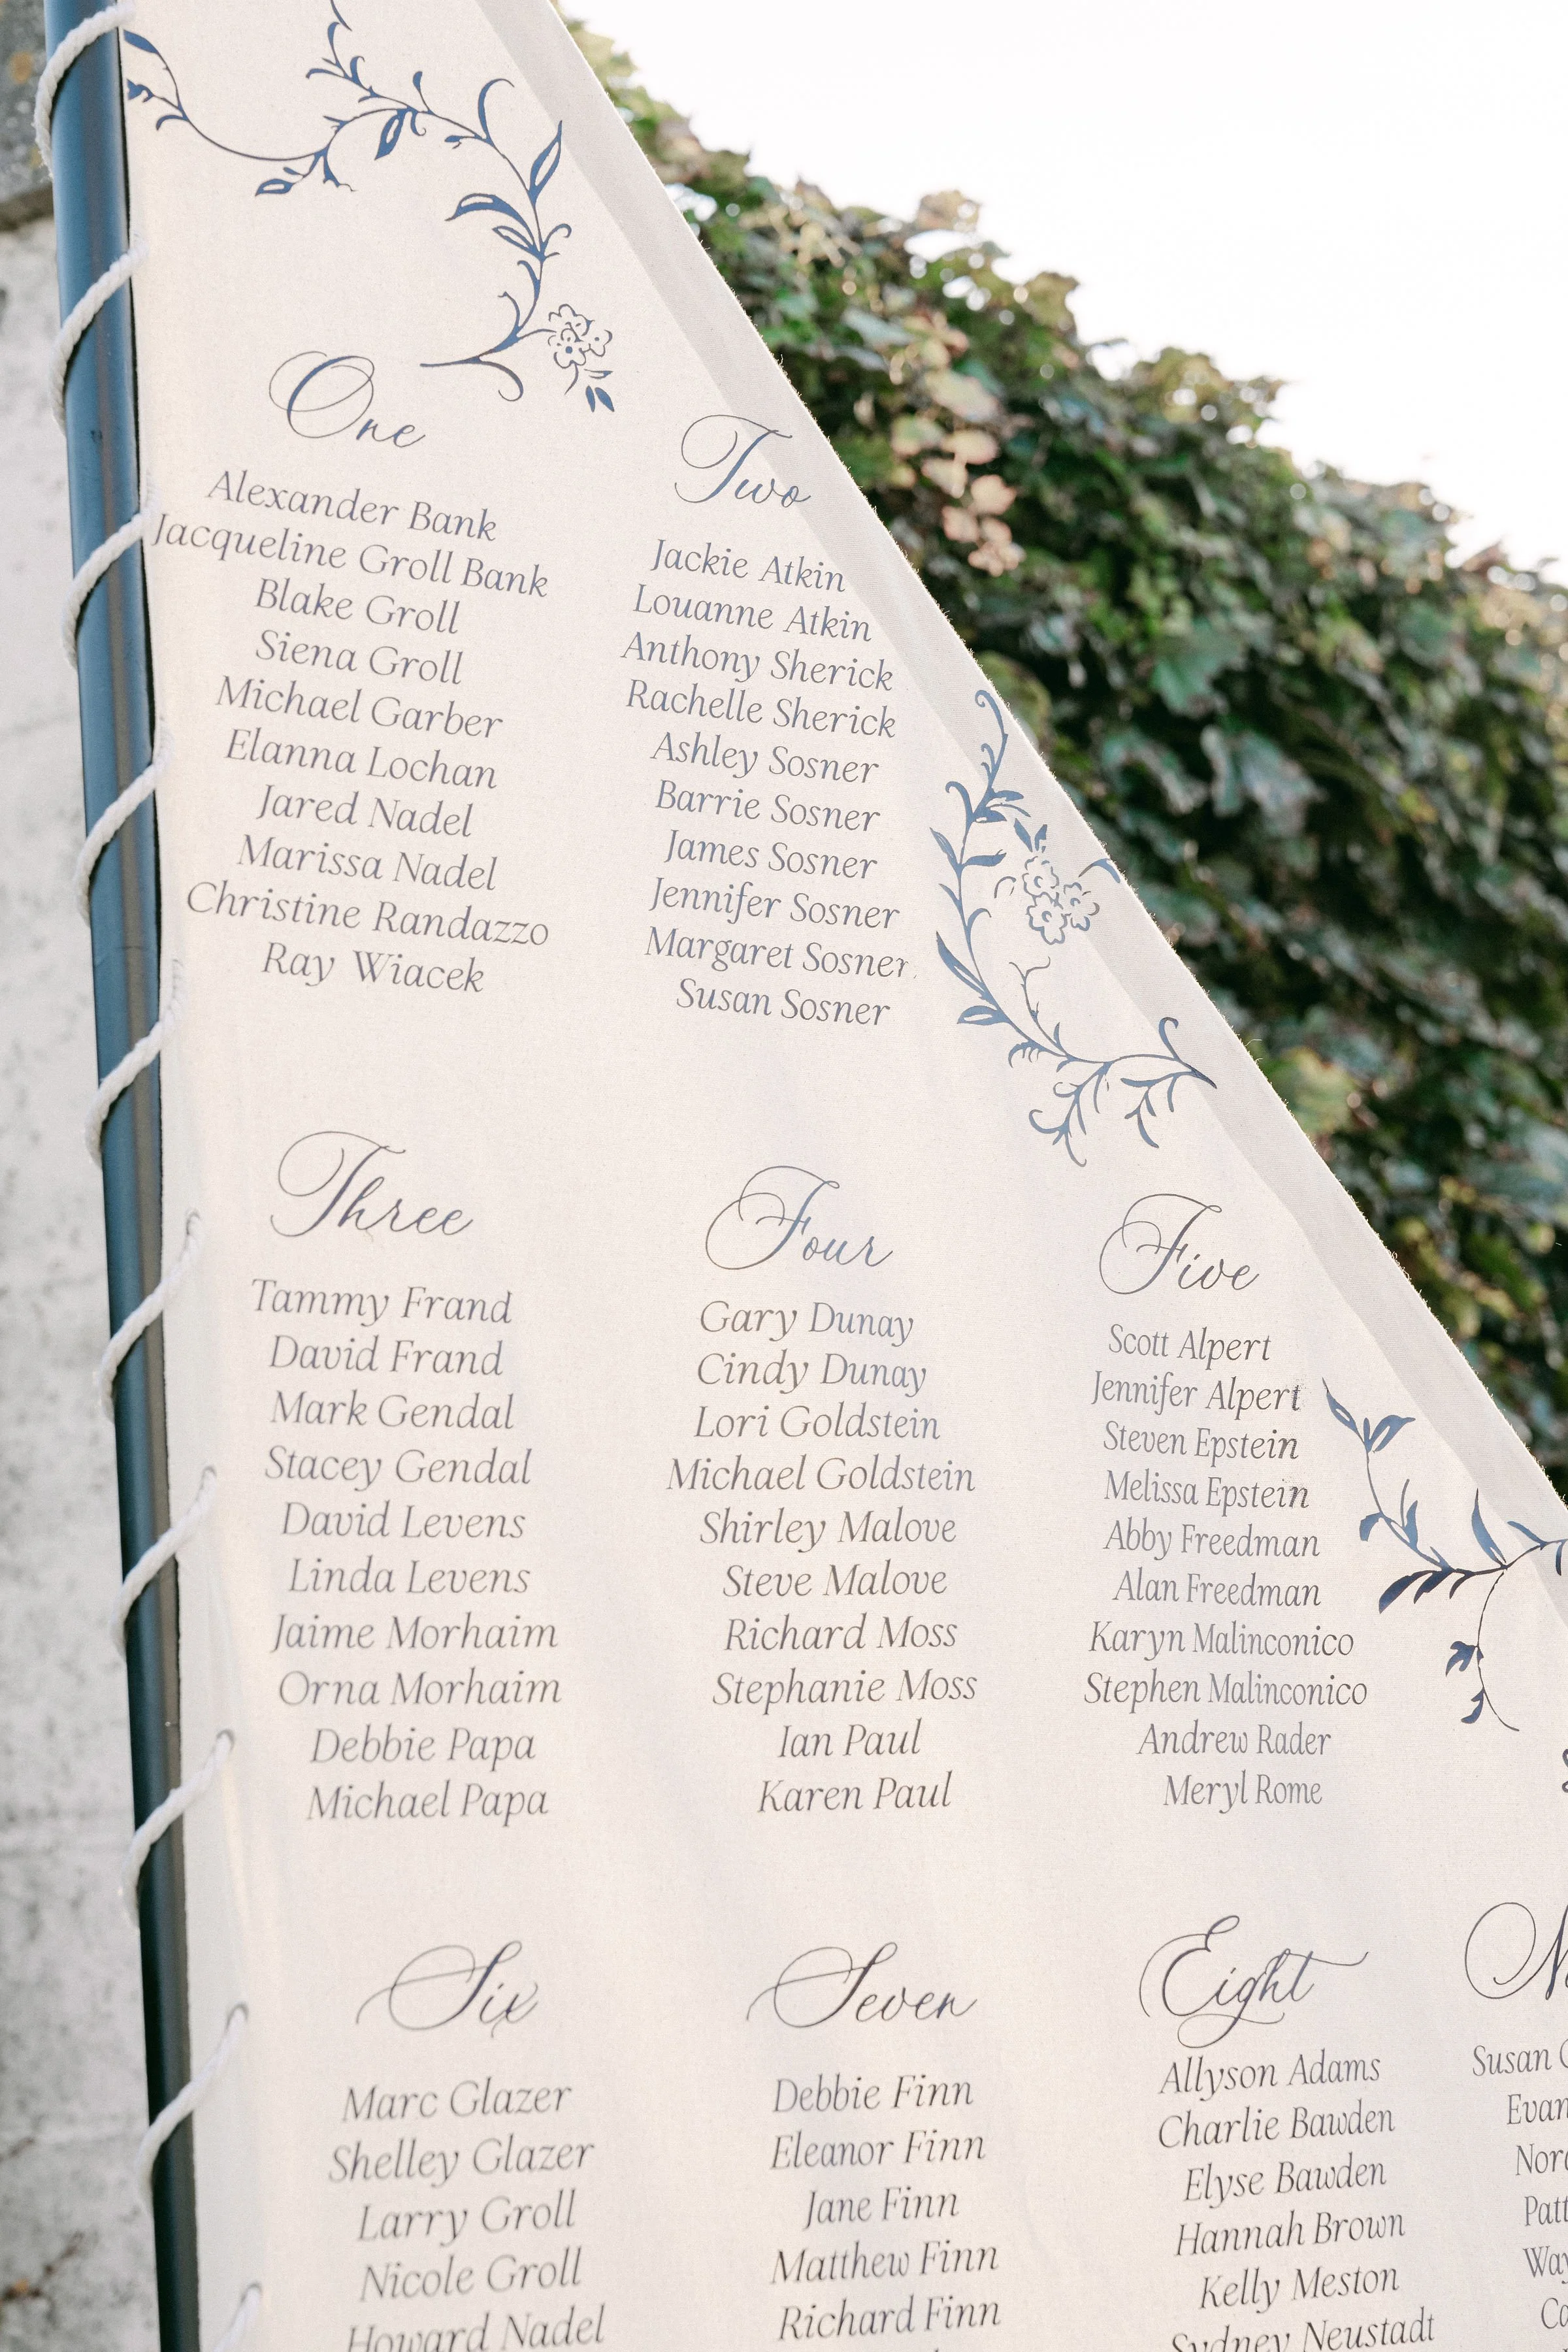 One
Alexander Bank
Jacqueline Groll Bank
Blake Groll
Siena Groll
Michael Garber
Elanna Lochan
Jared Nadel
Marissa Nadel
Christine Randazzo
Ray Wiacek
Two
Jackie Atkin
Louanne Atkin
Anthony Sherick
Rachelle Sherick
Ashley Sosner
Barrie Sosner
James Sosner
Jennifer Sosner
Margaret Sosner
Susan Sosner
Three
Tammy Frand
David Frand
Mark Gendal
Stacey Gendal
David Levens
Linda Levens
Jaime Morhaim
Orna Morhaim
Debbie Papa
Michael Papa
Four
Gary Dunay
Cindy Dunay
Lori Goldstein
Michael Goldstein
Shirley Malove
Steve Malove
Richard Moss
Stephanie Moss
Ian Paul
Karen Paul
Five
Scott Alpert
Jennifer Alpert
Steven Epstein
Melissa Epstein
Abby Freedman
Alan Freedman
Karyn Malinconico
Stephen Malinconico
Andrew Rader
Meryl Rome
Six
Marc Glazer
Shelley Glazer
Larry Groll
Nicole Groll
Howard Nadel
Seven
Debbie Finn
Eleanor Finn
Jane Finn
Matthew Finn
Richard Finn
Eight
Allyson Adams
Charlie Bawden
Elyse Bawden
Hannah Brown
Kelly Meston
Sydney Neustadt
Susan